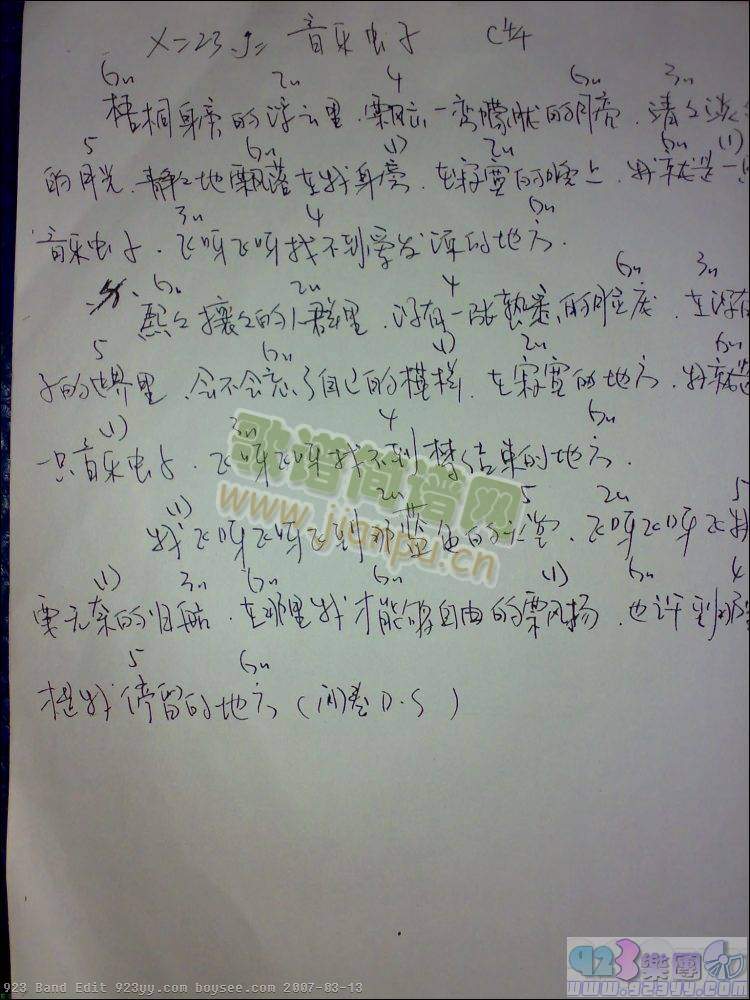 X=23 J= 音乐虫子 C 4/4
6m 2m 4 6m 3m
梧桐身旁的浮云里.飘 一弯朦胧的月亮.清々淡々
5 6m (1) 2m 6m (1)
的月光.静々地飘落在我身旁.在寂寞的晚上.我就是一只
3m 4 6m
音乐虫子.飞呀飞呀找不到爱发源的地方.
6m 2m 4 6m 3m
熙々攘々的人群里.没有一张熟悉的脸庞.在没有
5 6m (1) 2m 6m
子的世界里.会不会忘了自己的模样.在寂寞的地方.我就是
(1) 3m 4 6m
一只音乐虫子.飞呀飞呀找不到梦结束的地方.
(1) 2m 5 2m 5
我飞呀飞呀飞到那蓝色的天堂.飞呀飞呀飞我
(1) 3m 6m 6m (1) 6m 4
要无奈的归航.在那里我才能够自由的飘扬.也许到那里
5 6m
才是我停留的地方(间奏D.S)
歌谱简谱网
www.jianpu.cn
923 Band Edit 923yy.com boysee.com 2007-03-13
923樂團
www.923yy.com